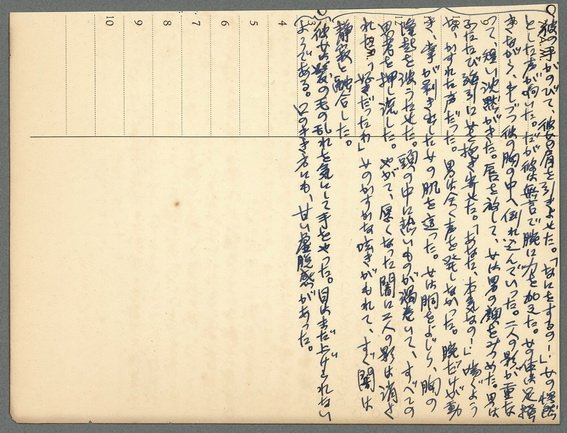 彼の手がのびて、彼女の肩を引きよせた。「なにをするの！」女の愕然
とした声が響いた。だが彼は無言で腕に力を加えた。女の体は足掻
きながら、半ば彼の胸の中へ倒れ込んでいった。二人の影が重な
って、短い沈黙がきた。唇を放して、女は男の顔をみつめた。男は
ふたたび強引に女を抱き寄せた。「あなた、本気なの！」喘ぐよう
な、かすれた声だった。男は全く声を発しなかった。腕だけが動
き、掌が剥き出した女の肌を這った。女は胴をよじり、胸の
隆起を波うたせた。頭の中に熱いものが渦巻いて、すべての
思考を押し流した。やがて、厚くなった闇に二人の影は消さ
れた。「好きだったわ」女のかすかな呟きがもれて、すぐ闇は
静寂と融合した。
彼女は髪の毛の乱れを気にして手をやった。目はまだ上げられない
ようである。口のきき方にも、甘い虚脱感があった。
3
4
5
6
7
8
9
10